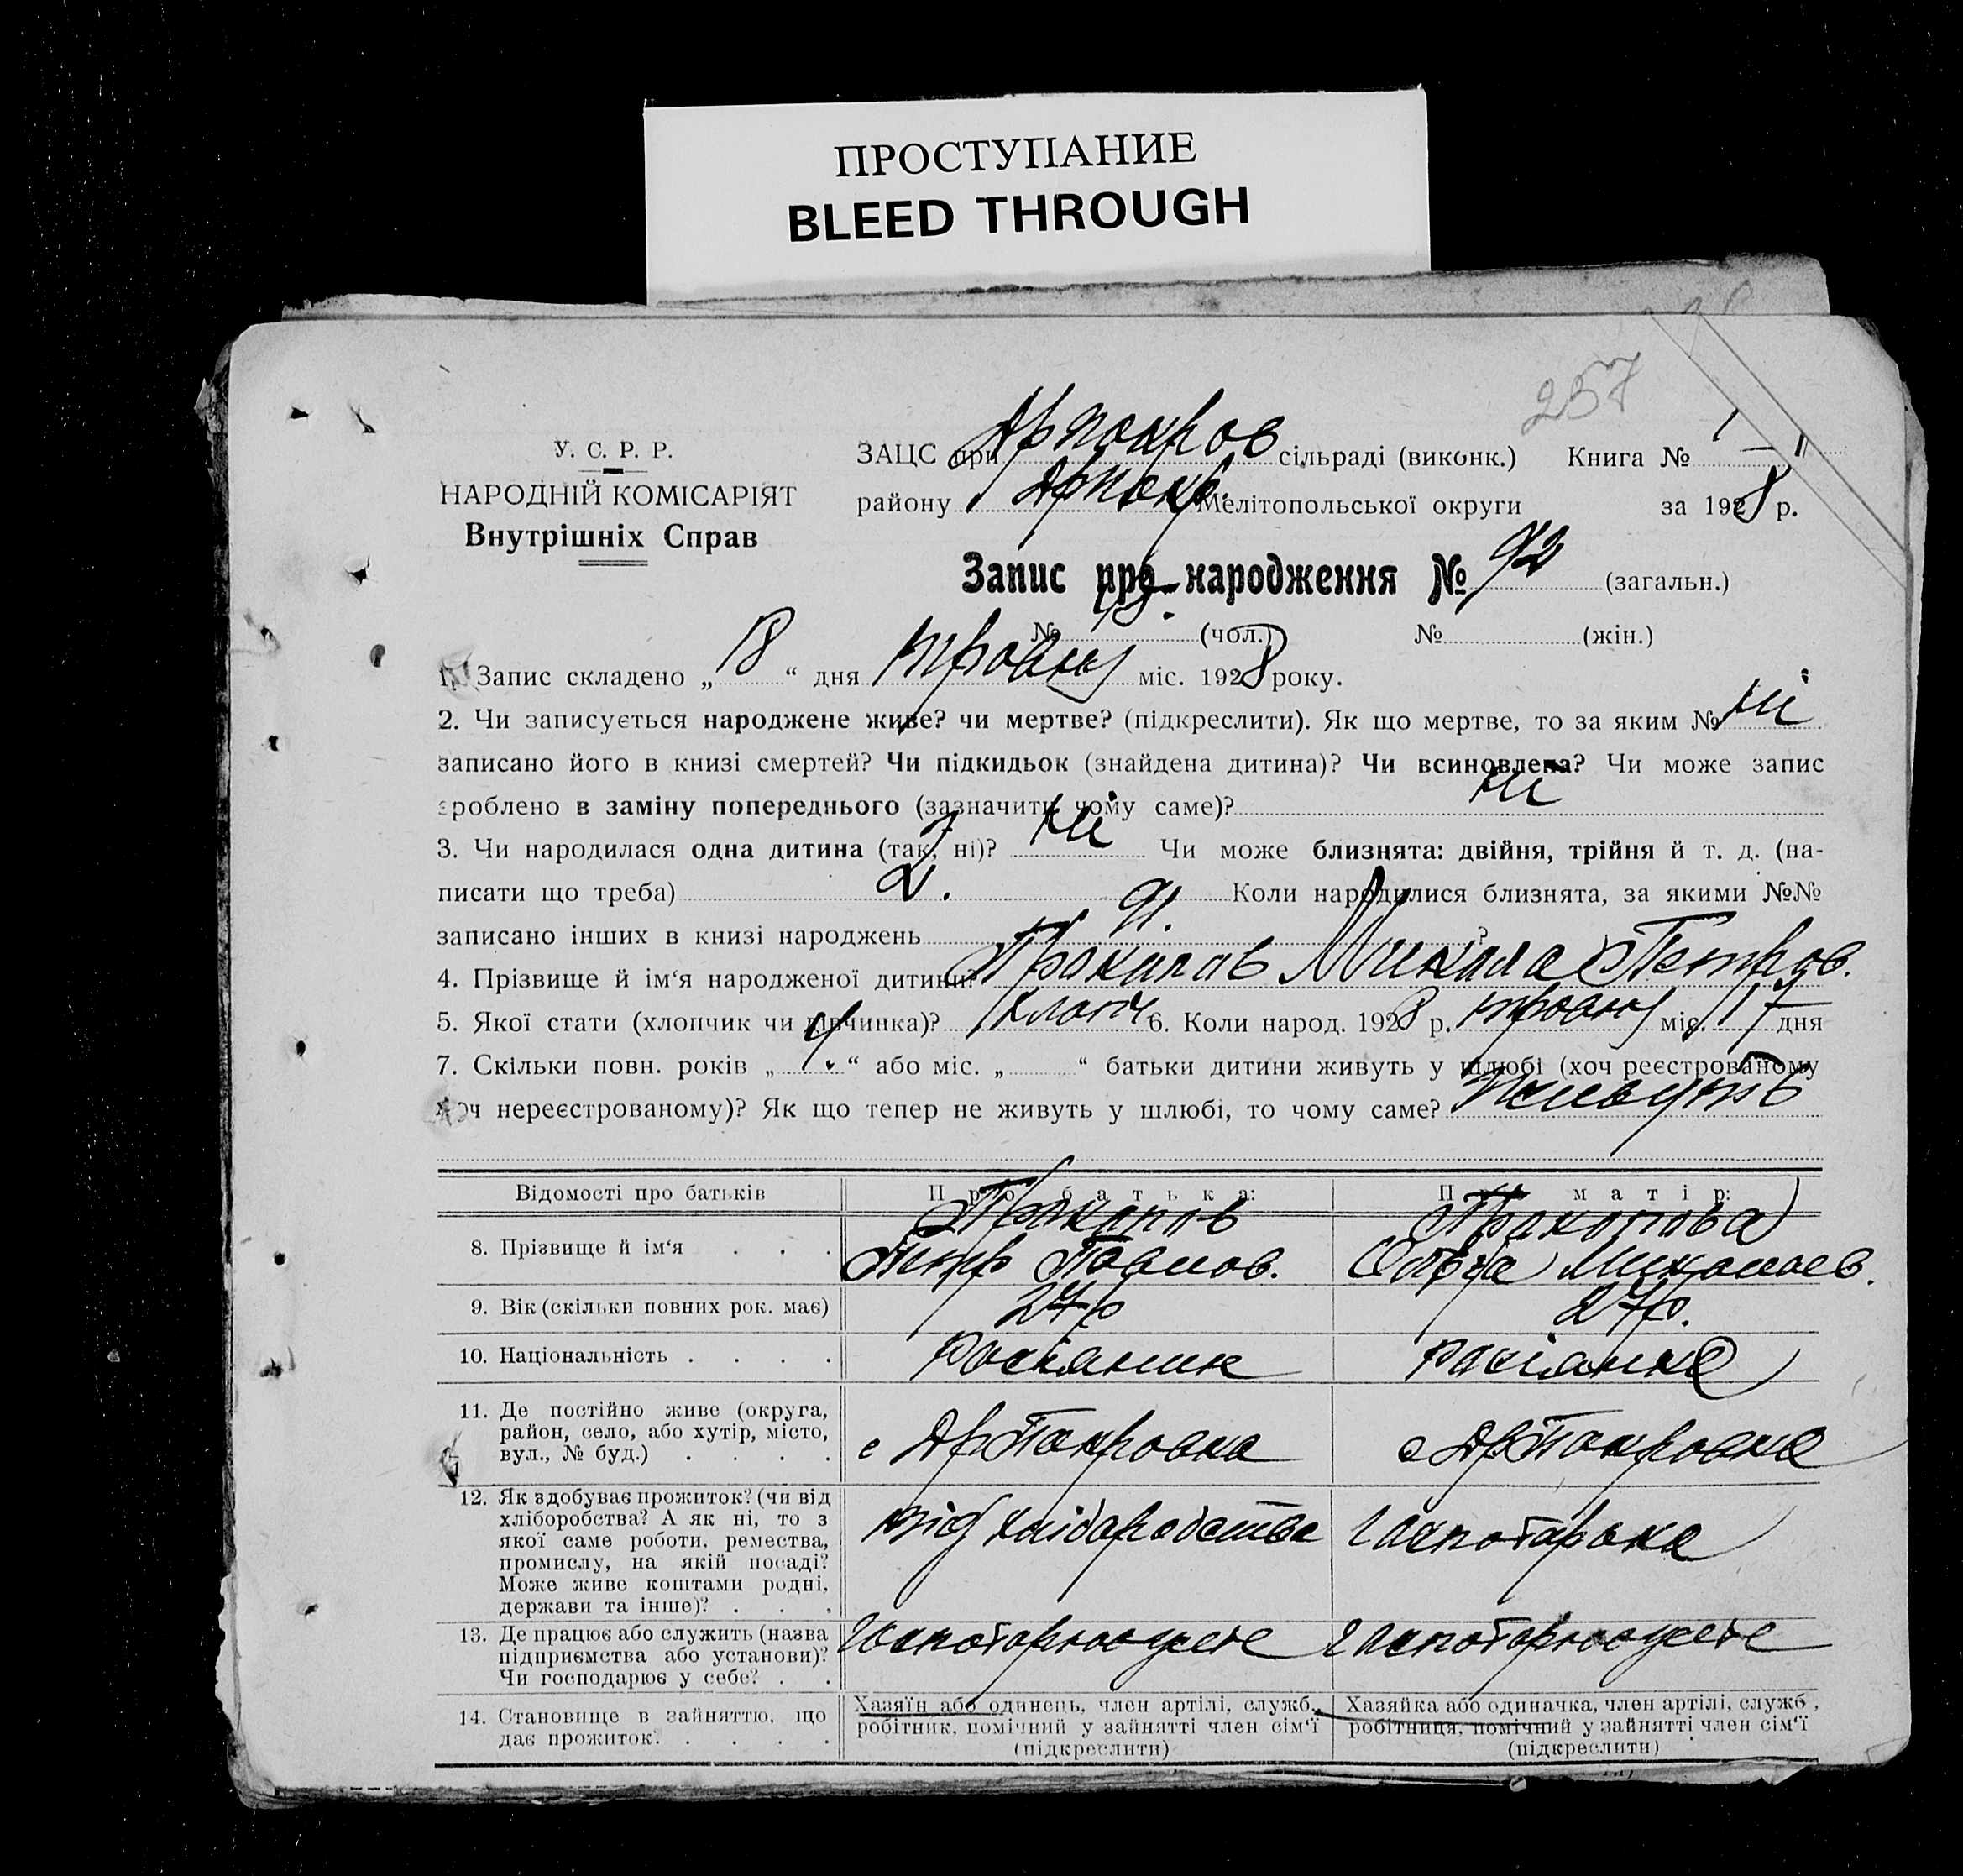 ПРОСТУПАНИЕ
BLEED THROUGH
257
У. С. Р. Р.
НАРОДНІЙ КОМІСАРІЯТ
Внутрішніх Справ
ЗАЦС при Др покров сільраді (виконк.) Книга № 1
району Др Покр. Мелітопольської округи за 1928 р.
Запис про народження № 92 (загальн.)
№ (чол.) № (жін.)
1. Запис складено „ 18 “ дня травня міс. 1928 року.
2. Чи записується народжене живе? чи мертве? (підкреслити). Як що мертве, то за яким № ні
записано його в книзі смертей? Чи підкидьок (знайдена дитина)? Чи всиновлена? Чи може запис
зроблено в заміну попереднього (зазначити чому саме)? ні
3. Чи народилася одна дитина (так, ні)? ні Чи може близнята: двійня, трійня й т. д. (на-
писати що треба) 2. Коли народилися близнята, за якими №№
записано інших в книзі народжень 91. ?
4. Прізвище й ім‘я народженої дитини? Прокопов Микола Петров.
5. Якої стати (хлопчик чи дівчинка)? хлопч 6. Коли народ. 1928 р. травня міс. 17 дня
7. Скільки повн. років „ “ або міс. „ “ батьки дитини живуть у шлюбі (хоч реєстрованому
хоч нереєстрованому)? Як що тепер не живуть у шлюбі, то чому саме? живуть
Відомості про батьків
Про батька:
Про матір:
8. Прізвище й ім‘я . . .
Прокопов
Петр Павлов.
Прокопова
Ольга Михолаев.
9. Вік (скільки повних рок. має)
27 р
27 р.
10. Національність . . . .
росіяник
росіянка
11. Де постійно живе (округа,
район, село, або хутір, місто,
вул., № буд.) . . . .
с Др Покровка
с Др Покровка
12. Як здобуває прожиток? (чи від
хліборобства? А як ні, то з
якої саме роботи, ремества,
промислу, на якій посаді?
Може живе коштами родні,
держави та інше)? . . .
від хліборобства
господарка
13. Де працює або служить (назва
підприємства або установи)?
Чи господарює у себе? . .
господарює у себе
господарює у себе
14. Становище в зайняттю, що
дає прожиток? . . . .
Хазяїн або одинець, член артілі, служб.,
робітник, помічний у зайнятті член сім‘ї
(підкреслити)
Хазяйка або одиначка, член артілі, служб.,
робітниця, помічний у зайнятті член сім‘ї
(підкреслити)